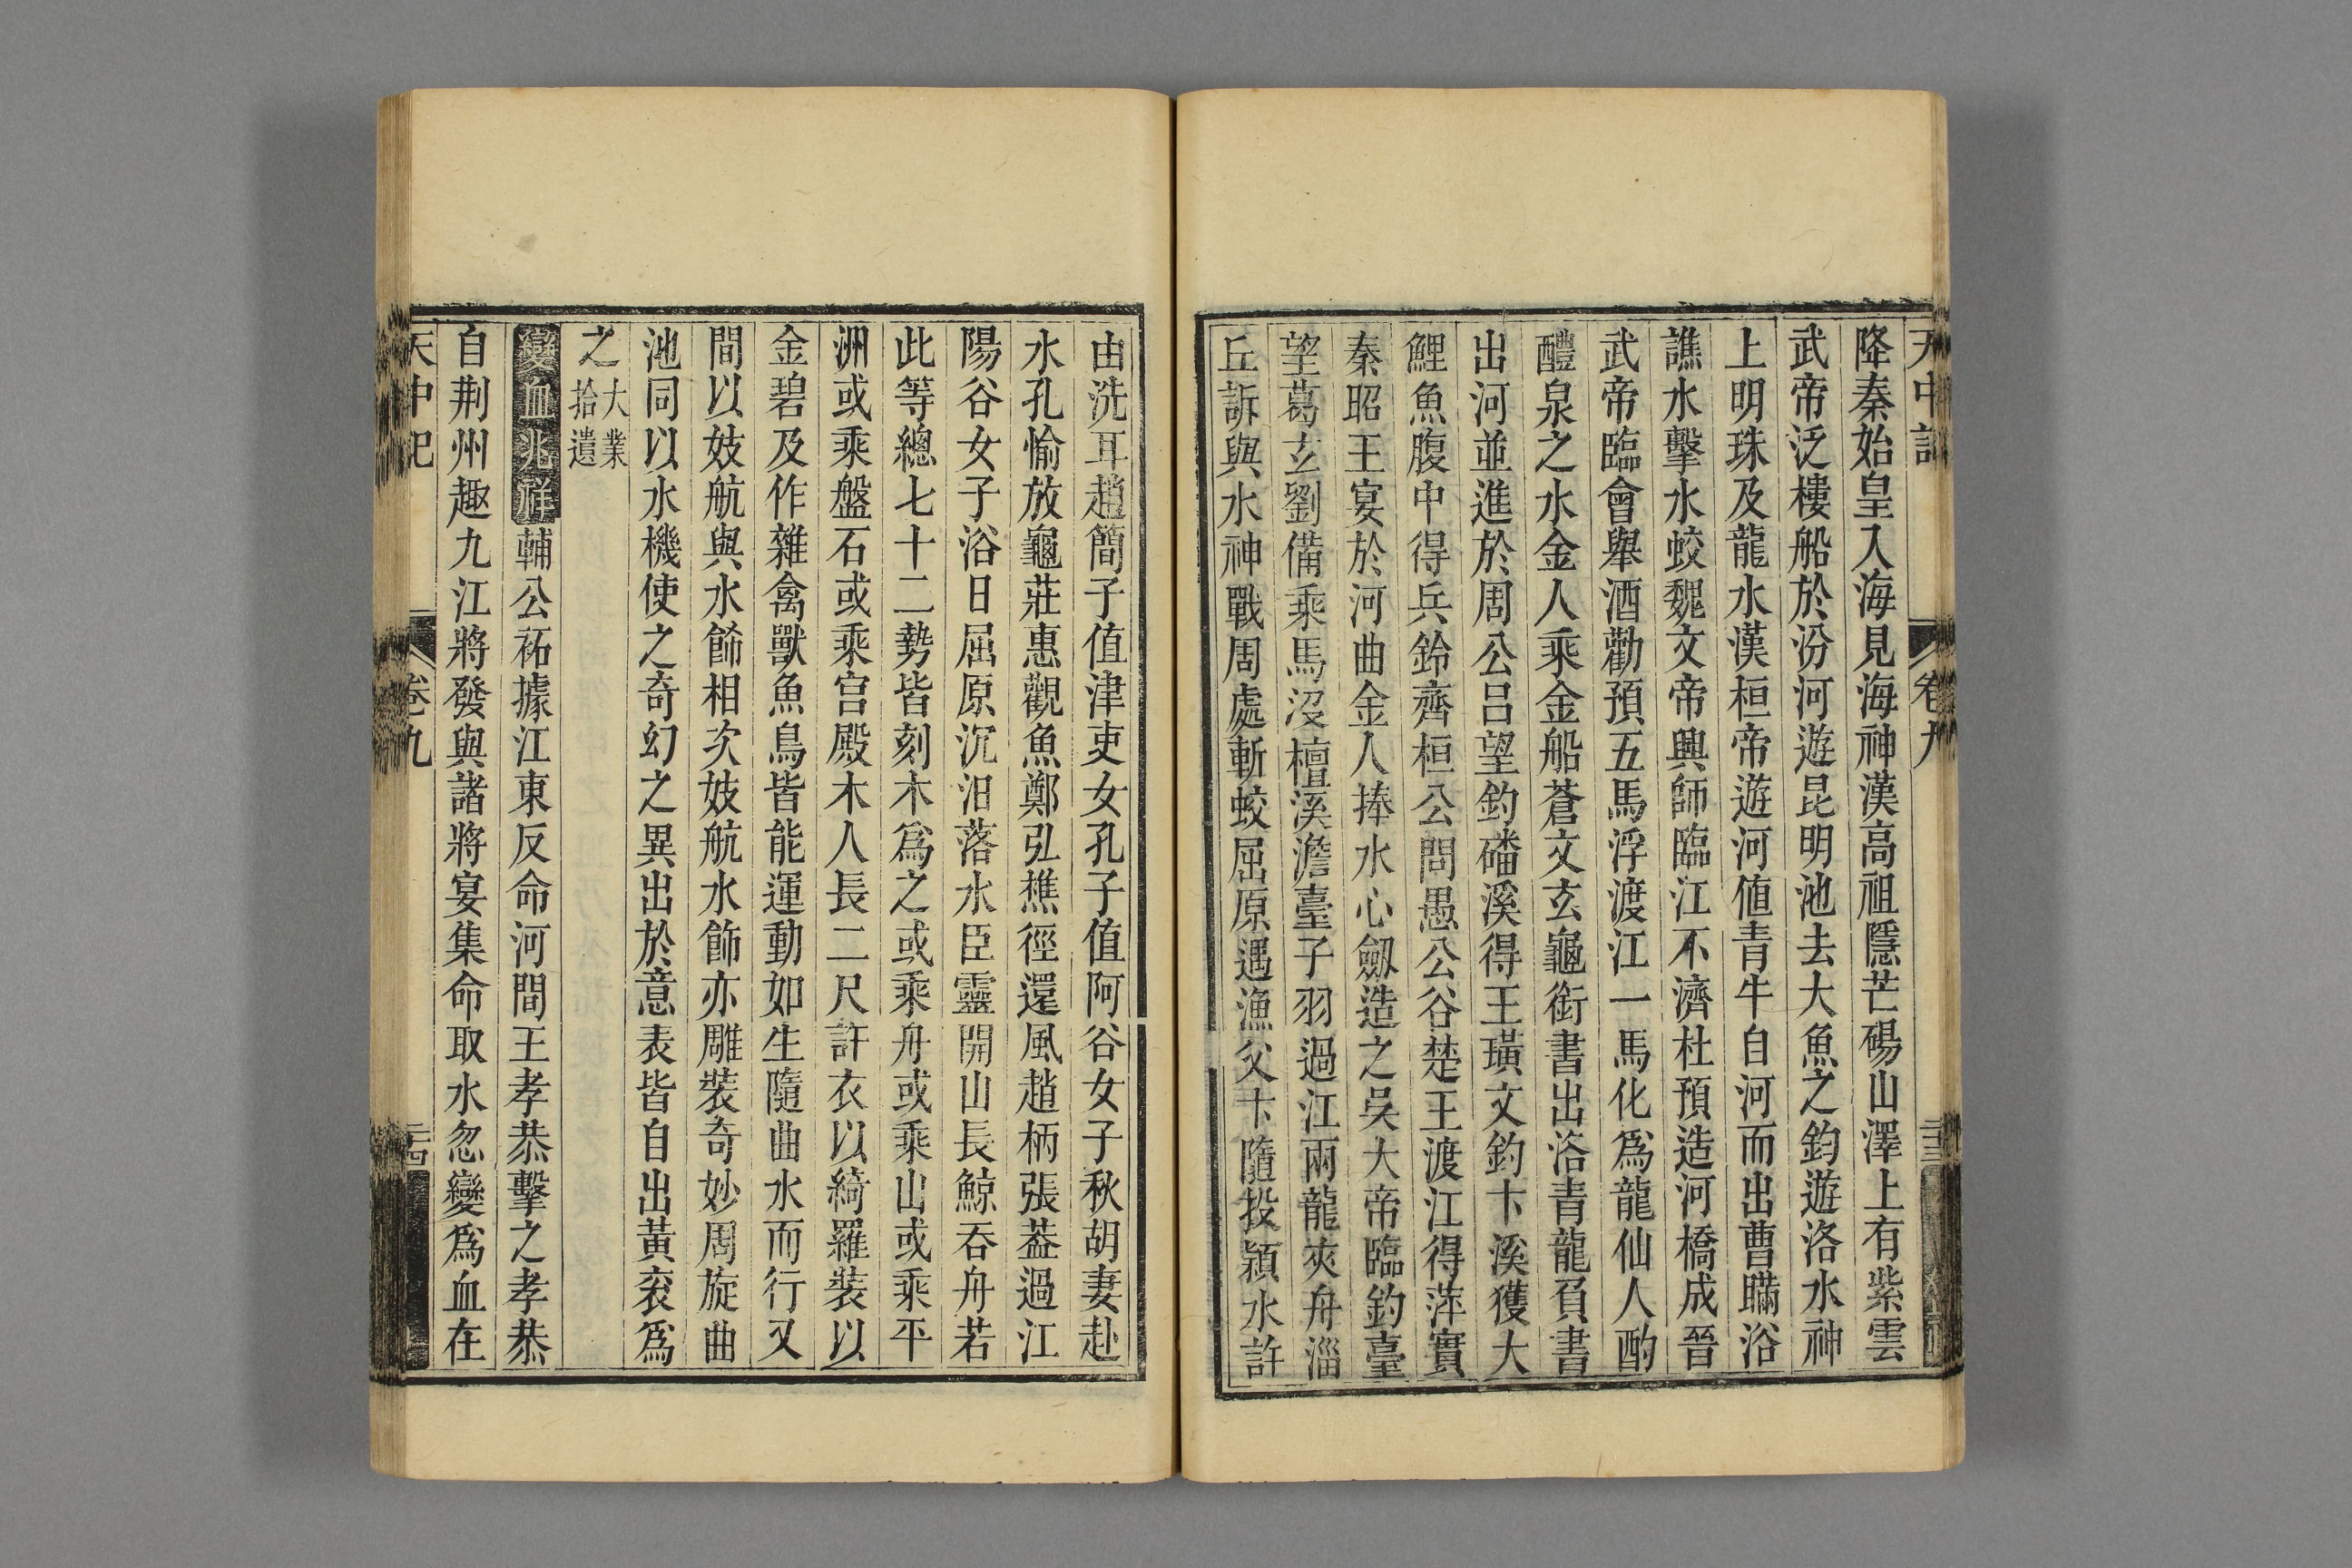 天中記 卷九 二十三
降秦始皇入海見海神漢高祖隱芒碭山澤上有紫雲
武帝泛樓船於汾河遊昆明池去大魚之鈎遊洛水神
上明珠及龍水漢桓帝遊河値青牛自河而出曹瞞浴
譙水擊水蛟魏文帝興師臨江不濟杜預造河橋成晉
武帝臨會舉酒勸預五馬浮渡江一馬化爲龍仙人酌
醴泉之水金人乘金船蒼文玄龜銜書出洛青龍負書
出河並進於周公呂望釣磻溪得王璜文釣卞溪獲大
鯉魚腹中得兵鈐齊桓公問愚公谷楚王渡江得萍實
秦昭王宴於河曲金人捧水心劒造之吳大帝臨釣臺
望葛玄劉備乘馬沒檀溪澹臺子羽過江兩龍夾舟淄
丘訴與水神戰周處斬蛟屈原遇漁父卞隨投潁水許
由洗耳趙簡子值津吏女孔子值阿谷女子秋胡妻赴
水孔愉放龜莊惠觀魚鄭弘樵徑還風趙柄張葢過江
陽谷女子浴日屈原沉汨落水臣靈開山長鯨吞舟若
此等總七十二勢皆刻木爲之或乘舟或乘山或乘平
洲或乘盤石或乘宫殿木人長二尺許衣以綺羅裝以
金碧及作雜禽獸魚鳥皆能運動如生隨曲水而行又
間以妓航與水餙相次妓航水飾亦雕裝奇妙周旋曲
池同以水機使之奇幻之異出於意表皆自出黃衮爲
之 大業拾遺
變血兆祥輔公祏據江東反命河間王孝恭擊之孝恭
自荆州趣九江將發與諸將宴集命取水忽變爲血在
天中記 卷九 二十四